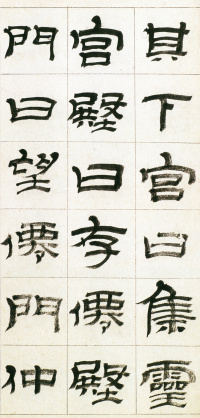 其下宮曰集靈
宮殿曰存僊殿
門曰望僊門仲